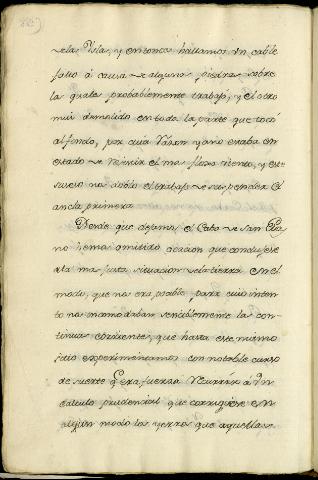 de la Ysla, y entonces hallamos un cable
falto á causa de alguna piedra sobre
la quale probablemente trabajó, y el otro
mui demolido en toda la parte que tocó
al fondo, por cuia razon ya no estaba en
estado de resistir el mas floxo viento, y este
suceso nos dobló el trabajo de suspender el
ancla primera.
Desde que dejamos el Cabo de San
no hemos omitido ocacion que condujese
a la mas justa situacion de la tierra en el
modo, que nos era posible para cuio inten-
to nos incomodaban sensiblemente las con-
tinuas corrientes, que hasta este mismo
sitio experimentamos con notable curso
de suerte q era fuerza recurrir a un
calculo prudencial que corrigiese en
algun modo los yerros que aquellas